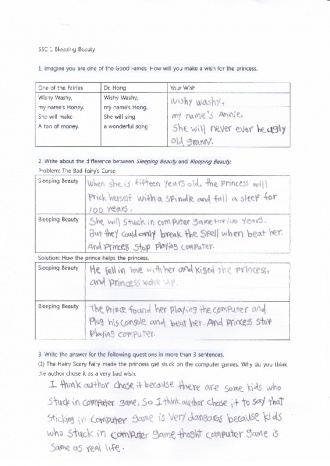 SSC 1 Bleeping Beauty
1. Imagine you are one of the Good Fairies. How will you make a wish for the princess.
One of the fairies
Dr. Hong
Your Wish
Wishy Washy,
my name's Honey.
She will make
A ton of money.
Wishy Washy,
my name's Hong.
She will sing
a wonderful song
wishy washy,
my name's Annie.
She will never ever be ugly
old granny.
2. Write about the difference between Sleeping Beauty and Bleeping Beauty.
Problem: The Bad Fairy's Curse
Sleeping Beauty
When she is fifteen years old, the princess will
Prick herself with a spindle and fall a sleep for
100 years.
Bleeping Beauty
She will stuck in computer game for 100 years.
But they could only break the spell when beat her.
And Princess stop playing computer.
Solution: How the prince helps the princess.
Sleeping Beauty
He fell in love with her and kissed the princess,
and princess woke up.
Bleeping Beauty
The Prince found her playing the computer and
Plug his console and beat her. And princess stop
Playing computer.
3. Write the answer for the following questions in more than 3 sentences.
(1) The Hairy Scary Fairy made the princess get stuck on the computer games. Why do you think
the author chose it as a very bad wish.
I think author chose it because there are some kids who
stuck in computer game. So I think author chose it to say that
sticking in computer game is very dangerous because kids
who stuck in computer game thought computer game is
same as real life.